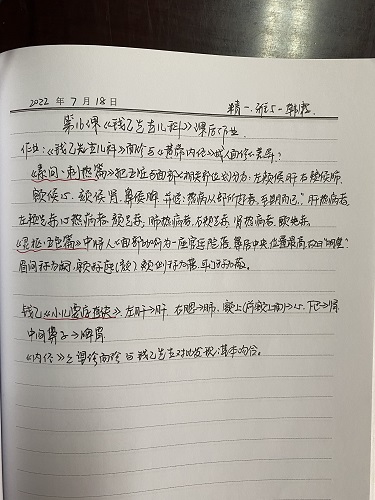 2022 年 7 月 18 日
精一
第16课《钱乙先生儿科》课后作业
作业:《钱乙先生儿科》面诊与《黄帝内经》成人面诊差异?
《素问·刺热篇》把五脏与面部相关部位划分为:左颊候肝 右颊候肺
额候心 颏候肾 鼻候脾 并述:热病从部所起者,至期而已:肝热病者
左颊先赤 心热病者,颜先赤,肺热病者,右颊先赤,肾热病者,颐先赤
《灵枢·五色篇》中将人面部 为一座宫廷院落 鼻居中央 位置最高
眉间称为阙,额称庭(颜)颊侧称为藩,耳门称为蔽。
钱乙《小儿 》左腮→肝 右腮→肺 额上 →心 下巴→肾
中间鼻子→脾胃
《内经》之望诊面诊与钱乙先生对比发现:基本吻合。